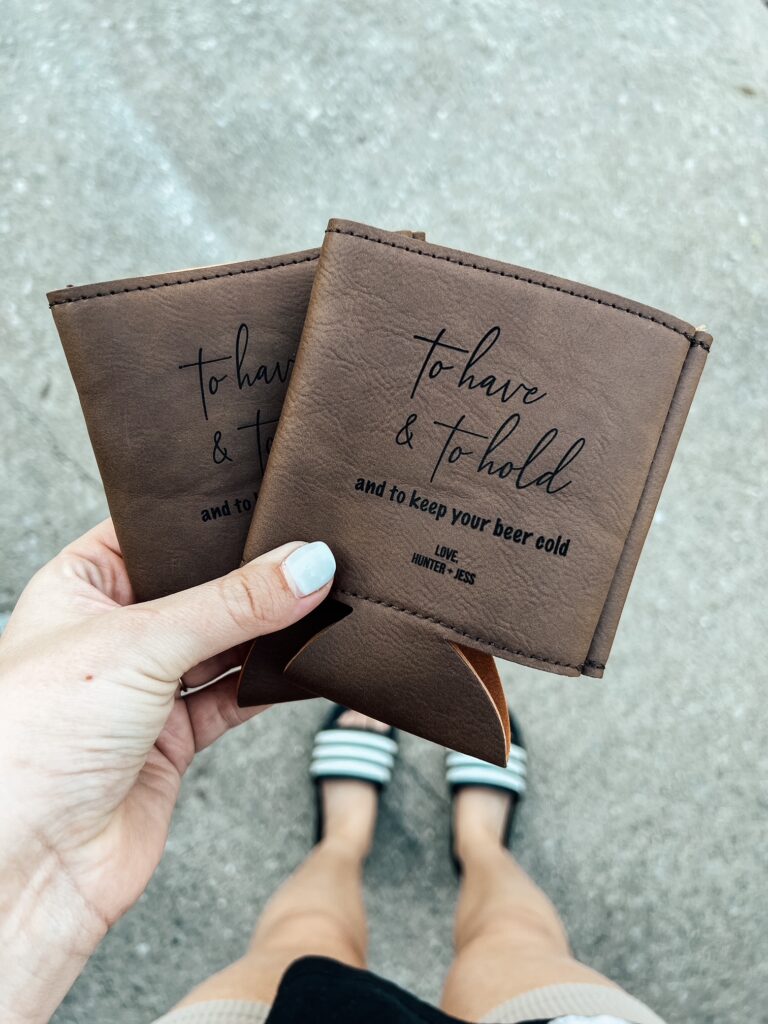 to have
& to hold
and to keep your beer cold
LOVE,
HUNTER + JESS
to hav
& to
and to k